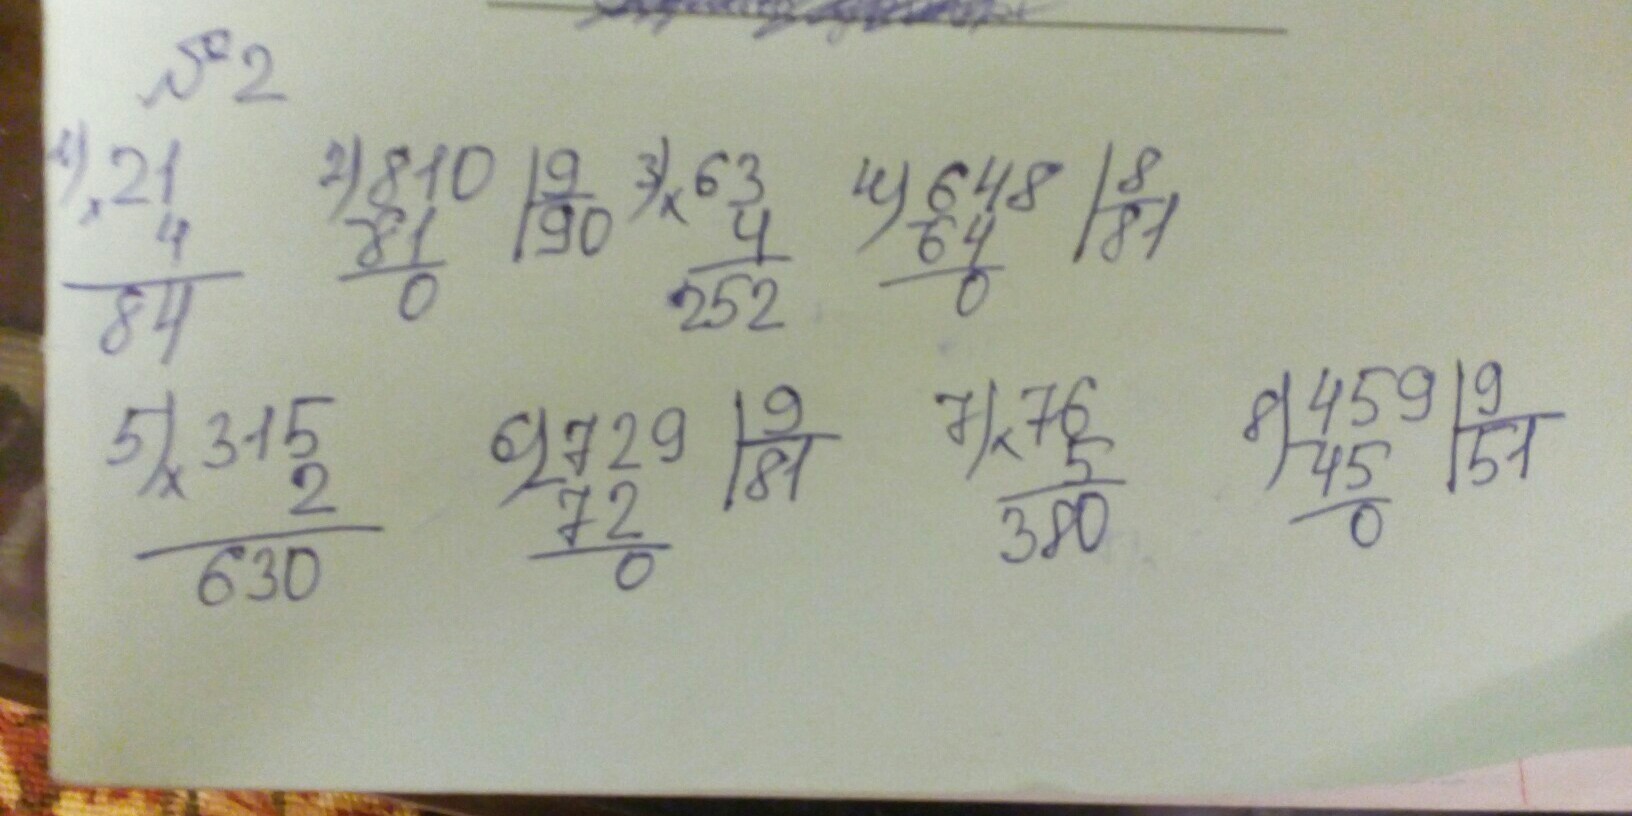 №2
1) × 21 2) 810 | 9 3) × 63 4) 648 | 8
4 81 | 90 4 64 | 81
84 0 252 0
5) × 315 6) 729 | 9 7) × 76 8) 459 | 9
2 72 | 81 5 45 | 51
630 0 380 0